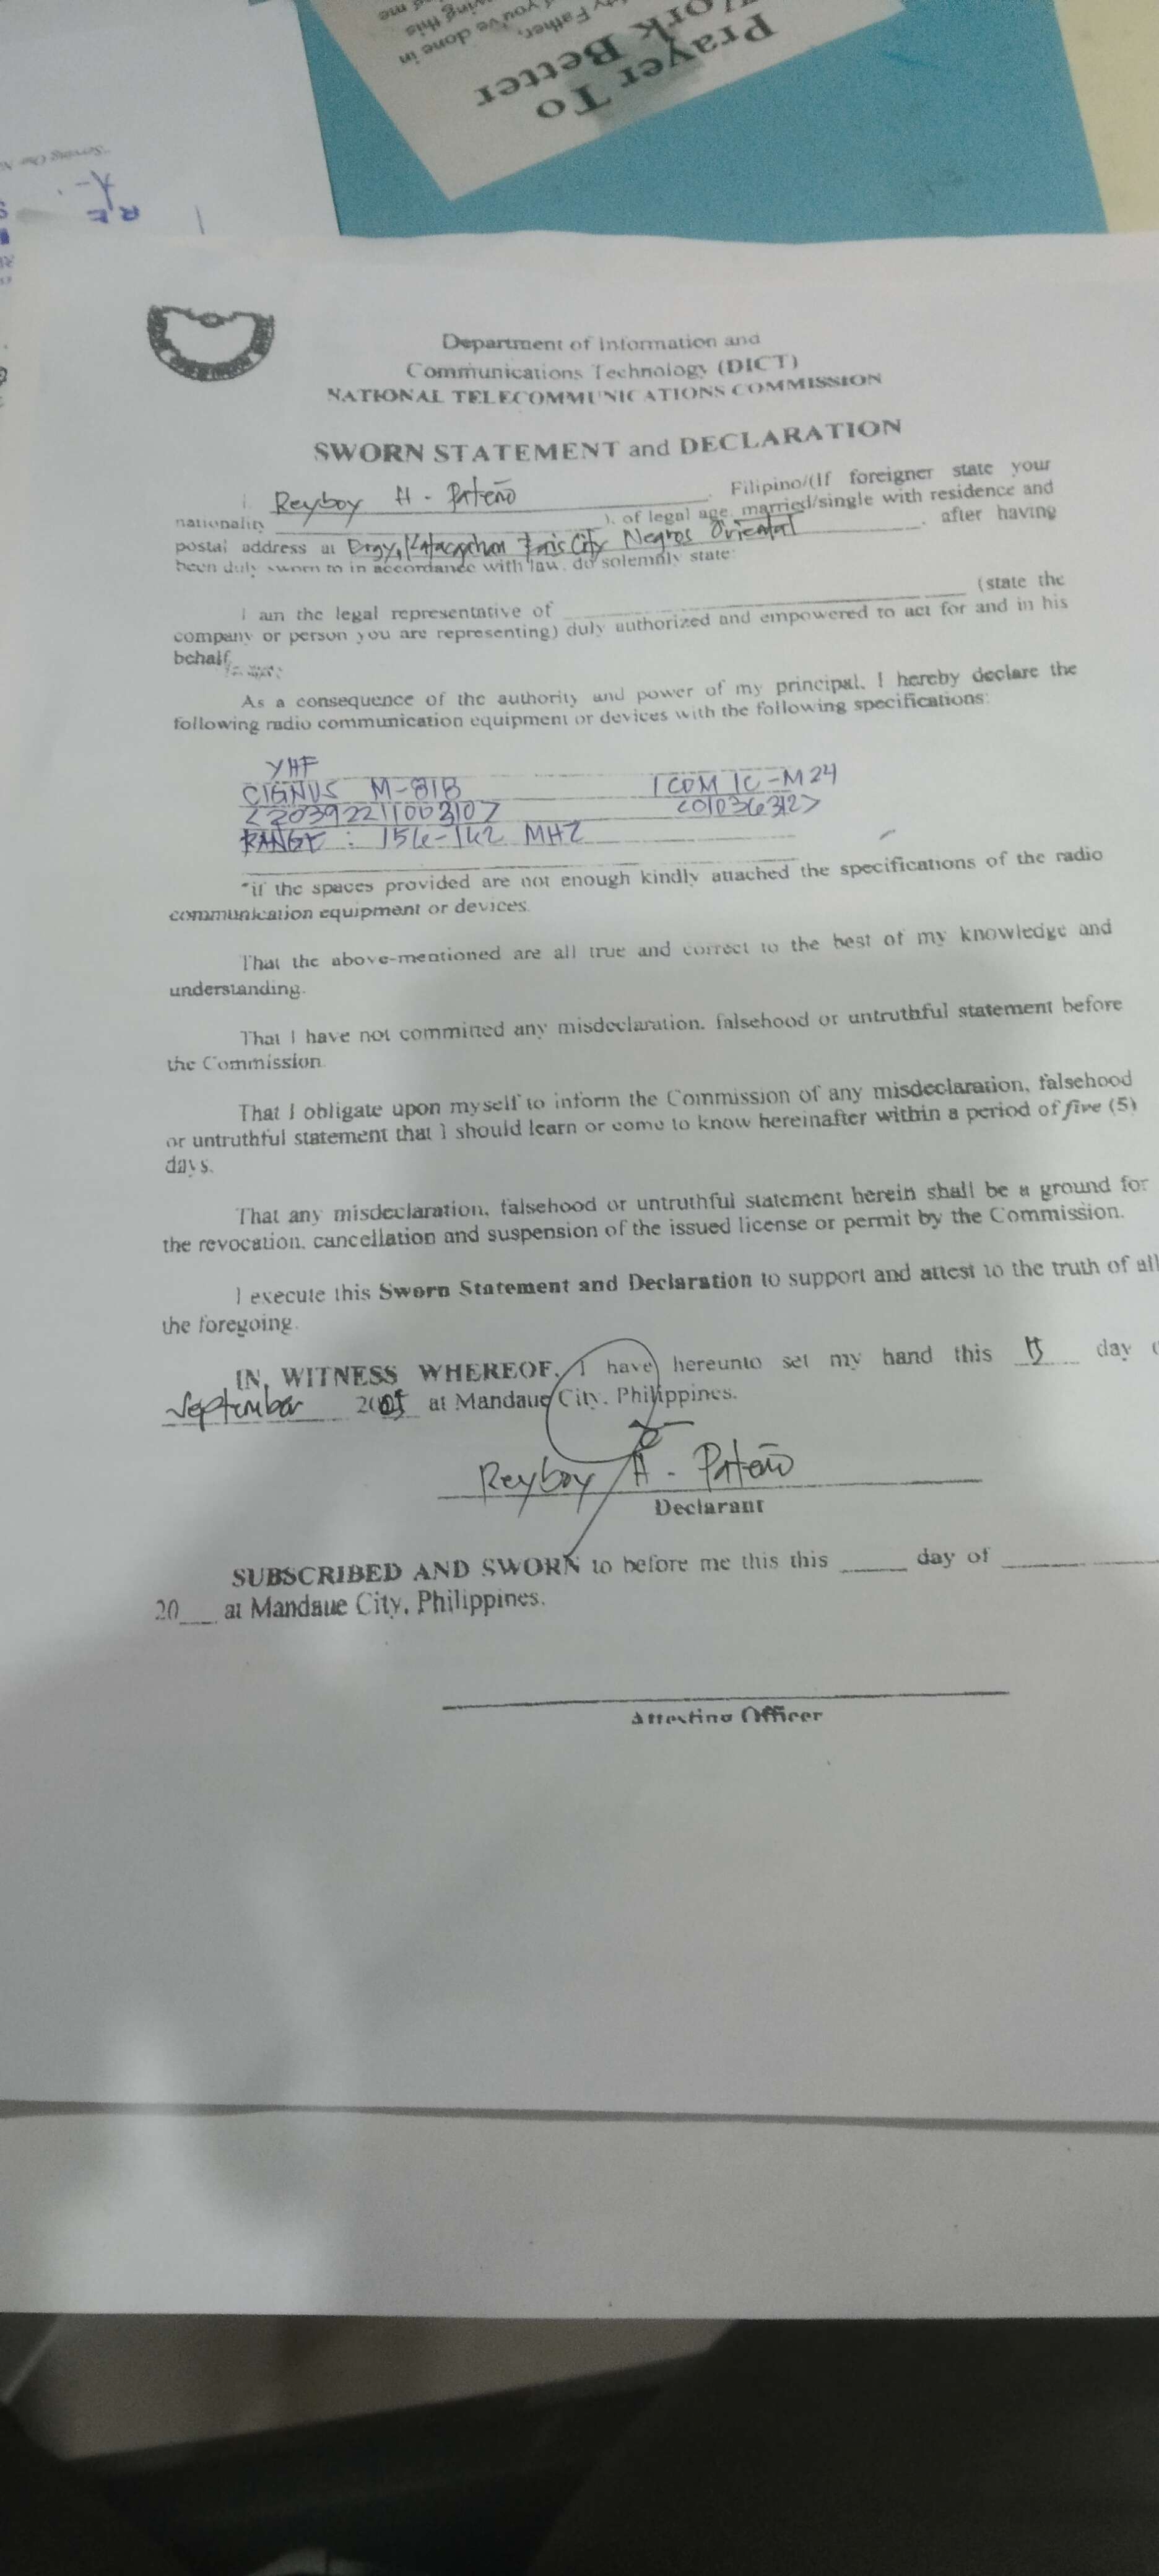 Prayer To
Work Better
Father,
you've done in
this
me
Serving One
R E
Department of Information and
Communications Technology (DICT)
NATIONAL TELECOMMUNICATIONS COMMISSION
SWORN STATEMENT and DECLARATION
I, Reyboy H. Pateño Filipino/(If foreigner state your
nationality ), of legal age, married/single with residence and
postal address at Brgy, City Negros Oriental , after having
been duly sworn to in accordance with law, do solemnly state:
I am the legal representative of (state the
company or person you are representing) duly authorized and empowered to act for and in his
behalf
As a consequence of the authority and power of my principal, I hereby declare the
following radio communication equipment or devices with the following specifications:
VHF
CIGNUS M-81B ICOM IC-M24
RANGE : MHZ
*if the spaces provided are not enough kindly attached the specifications of the radio
communication equipment or devices.
That the above-mentioned are all true and correct to the best of my knowledge and
understanding.
That I have not committed any misdeclaration, falsehood or untruthful statement before
the Commission.
That I obligate upon myself to inform the Commission of any misdeclaration, falsehood
or untruthful statement that I should learn or come to know hereinafter within a period of five (5)
days.
That any misdeclaration, falsehood or untruthful statement herein shall be a ground for
the revocation, cancellation and suspension of the issued license or permit by the Commission.
I execute this Sworn Statement and Declaration to support and attest to the truth of all
the foregoing.
IN WITNESS WHEREOF, I have hereunto set my hand this 15 day
September at Mandaue City, Philippines.
Reyboy H. Pateño
Declarant
SUBSCRIBED AND SWORN to before me this this ____ day of ____
20__ at Mandaue City, Philippines.
Attesting Officer